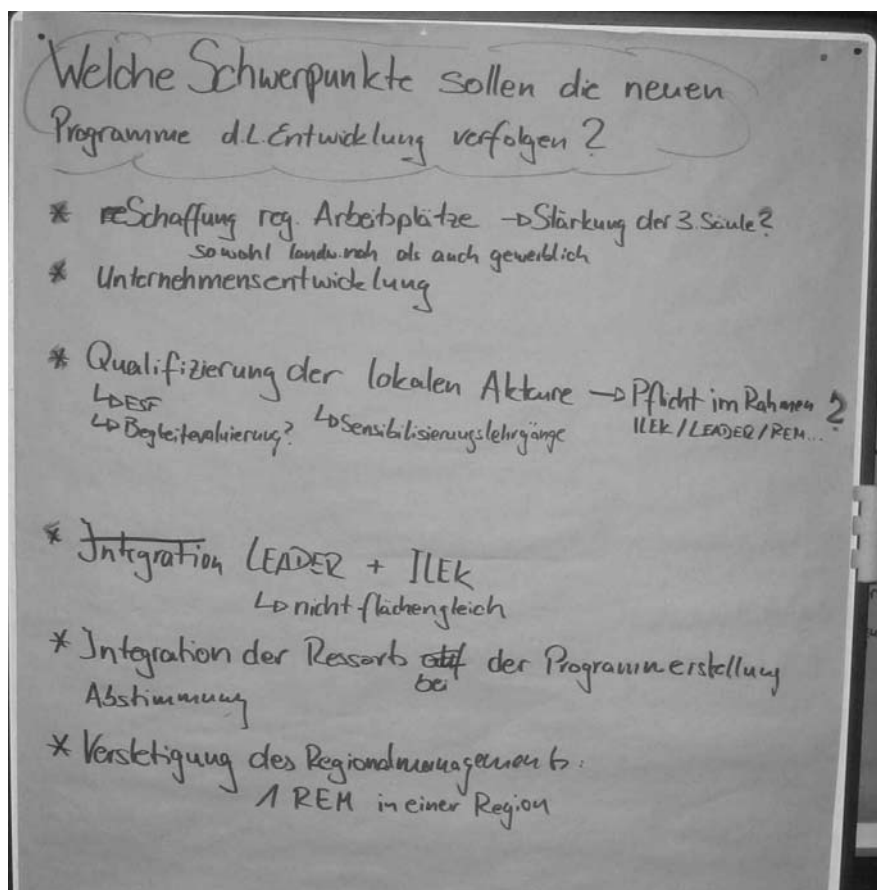 Welche Schwerpunkte sollen die neuen
Programme d.L.Entwicklung verfolgen?
* Schaffung reg. Arbeitsplätze → Stärkung der 3. Säule?
sowohl als auch gewerblich
* Unternehmensentwicklung
* Qualifizierung der lokalen Akteure → Pflicht im Rahmen ?
↳ ESF
ILEK/LEADER/REM...
↳ Begleitevaluierung? ↳ Sensibilisierungslehrgänge
* Integration LEADER + ILEK
↳ nicht flächengleich
* Integration der Ressorts bei der Programmerstellung
Abstimmung
* Verstetigung des Regionalmanagements:
1 REM in einer Region